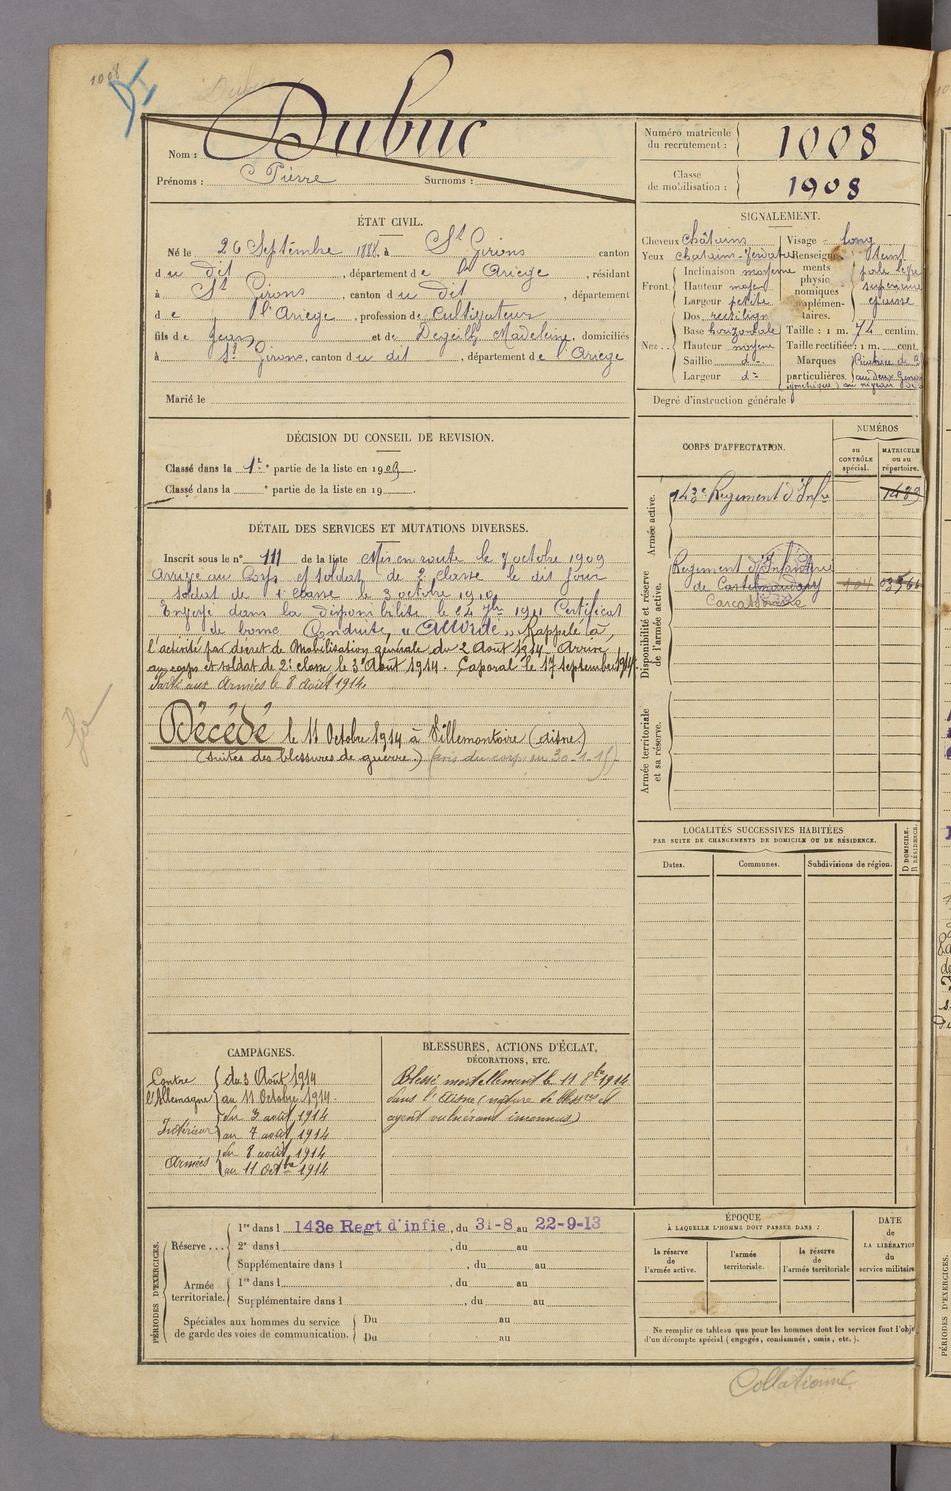 1008
Nom : Dubuc
Prénoms : Pierre Surnoms :
Numéro matricule du recrutement : 1008
Classe de mobilisation : 1908
ÉTAT CIVIL.
Né le 26 Septembre 1888, à St Girons canton
d u dit, département d e l'Ariège, résidant
à St Girons, canton d u dit, département
d e l'Ariège, profession de Cultivateur
fils de Jean et de Degeilh Madeleine, domiciliés
à St Girons, canton d u dit, département d e l'Ariège
Marié le
SIGNALEMENT.
Cheveux châtains
Yeux châtain-verdâtre
Front. Inclinaison moyenne
Hauteur moyen
Largeur petite
Nez. Dos rectiligne
Base horizontale
Hauteur moyenne
Saillie d°
Largeur d°
Visage long
Renseignements physionomiques complémentaires.
supérieure
épaisse
Taille : 1 m. 74 centim.
Taille rectifiée : 1 m. cent.
Marques particulières.
Degré d'instruction générale
DÉCISION DU CONSEIL DE REVISION.
Classé dans la 1e partie de la liste en 1909.
Classé dans la e partie de la liste en 19 .
CORPS D'AFFECTATION.
NUMÉROS
au CONTRÔLE spécial.
MATRICULE ou au répertoire.
Armée active.
143e Régiment d'Infie 1489
Disponibilité et réserve de l'armée active.
Régiment d'Infanterie
de Castelnaudary
Carcassonne
Armée territoriale et sa réserve.
DÉTAIL DES SERVICES ET MUTATIONS DIVERSES.
Inscrit sous le n° 111 de la liste Mis en route le 7 octobre 1909
Arrivé au Corps et soldat de 2e classe le dit jour
Soldat de 1e classe le 3 octobre 1910
dans la disponibilité le 24 7bre 1911 Certificat
de bonne Conduite "Accordé". Rappelé à
l'activité par décret de Mobilisation générale du 2 Août 1914. Arrivé
au corps et soldat de 2e classe le 3 Août 1914. Caporal le 17 septembre 1914.
Parti aux Armées le 8 août 1914.
Décédé le 11 Octobre 1914 à Villemontoire (Aisne)
(suites des blessures de guerre.) (avis du corps du 30-1-15)
LOCALITÉS SUCCESSIVES HABITÉES
PAR SUITE DE CHANGEMENTS DE DOMICILE OU DE RÉSIDENCE.
Dates. Communes. Subdivisions de région. D DOMICILE. R RÉSIDENCE.
CAMPAGNES.
Contre l'Allemagne du 3 Août 1914
au 11 Octobre 1914.
Intérieur du 3 août 1914
au 7 août 1914
Armées du 8 août 1914
au 11 Octbre 1914
BLESSURES, ACTIONS D'ÉCLAT,
DÉCORATIONS, ETC.
Blessé mortellement le 11 8bre 1914
dans l'Aisne (nature de blessures et
agent vulnérant inconnus)
PÉRIODES D'EXERCICES.
Réserve ... 1re dans l 143e Regt d'infie, du 31-8 au 22-9-13
2e dans l , du au
Supplémentaire dans l , du au
Armée territoriale. 1re dans l , du au
Supplémentaire dans l , du au
Spéciales aux hommes du service de garde des voies de communication. Du au
Du au
ÉPOQUE
À LAQUELLE L'HOMME DOIT PASSER DANS :
la réserve de l'armée active.
l'armée territoriale.
la réserve de l'armée territoriale
DATE de LA LIBÉRATION du service militaire
Ne remplir ce tableau que pour les hommes dont les services font l'obje
d'un décompte spécial (engagés, condamnés, omis, etc.).
Collationné
PÉRIODES D'EXERCICES.